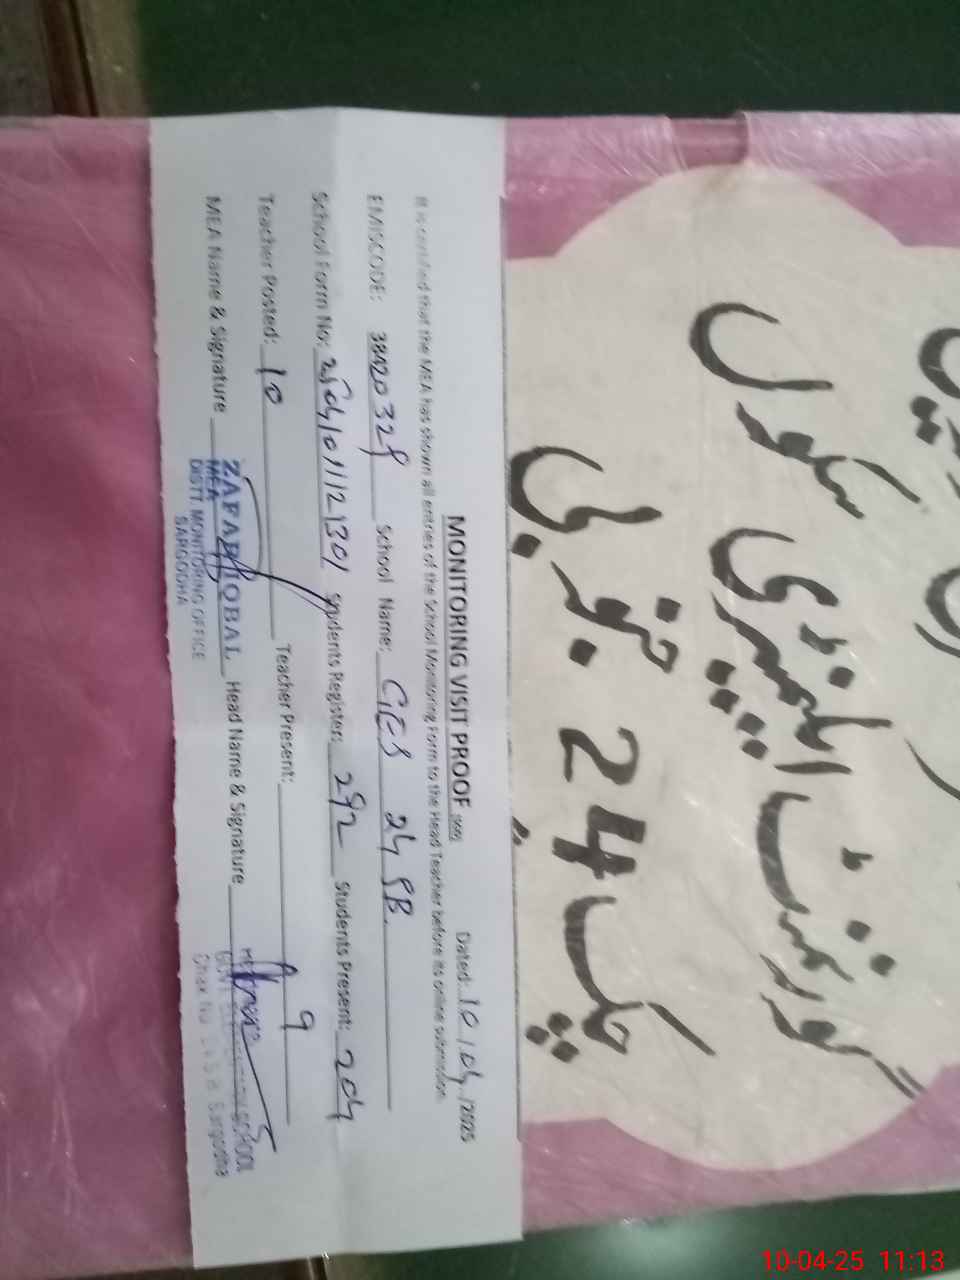 MONITORING VISIT PROOF
Dated: 10/04/2025
It is certified that the MEA has shown all entries of the School Monitoring Form to the Head Teacher before its online submission.
EMISCODE: 38420329 School Name: GES 24 SB.
School Form No: Students Register: 292 Students Present: 204
Teacher Posted: 10 Teacher Present: 9
MEA Name & Signature Head Name & Signature
ZAFAR IQBAL
MEA
DISTT. MONITORING OFFICE
SARGODHA
GOVT ELEMENTARY SCHOOL
Chak No 24 S.B Sargodha
گورنمنٹ ایلیمنٹری سکول
چک 24 جنوبی
10-04-25 11:13